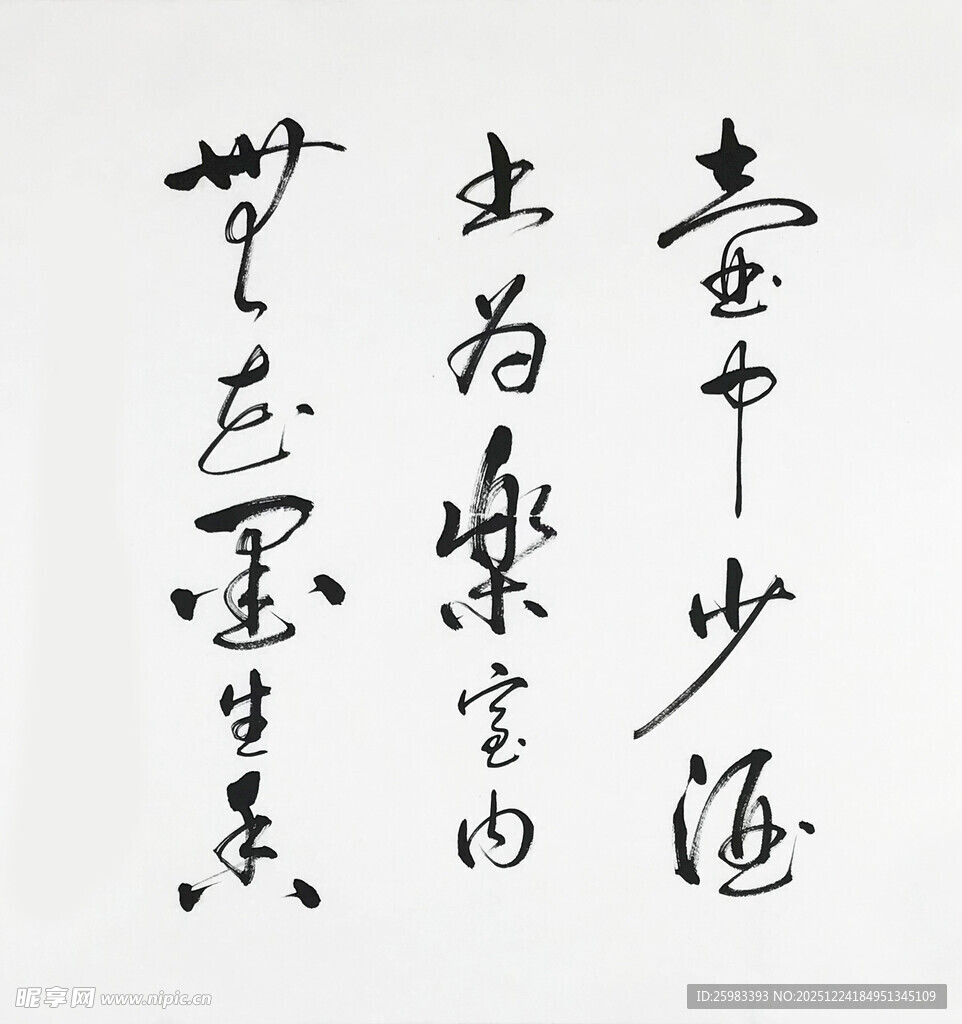 壺中少酒
書為樂室内
無花墨生香
昵享网 www.nipic.cn
ID:25983393 NO:20251224184951345109